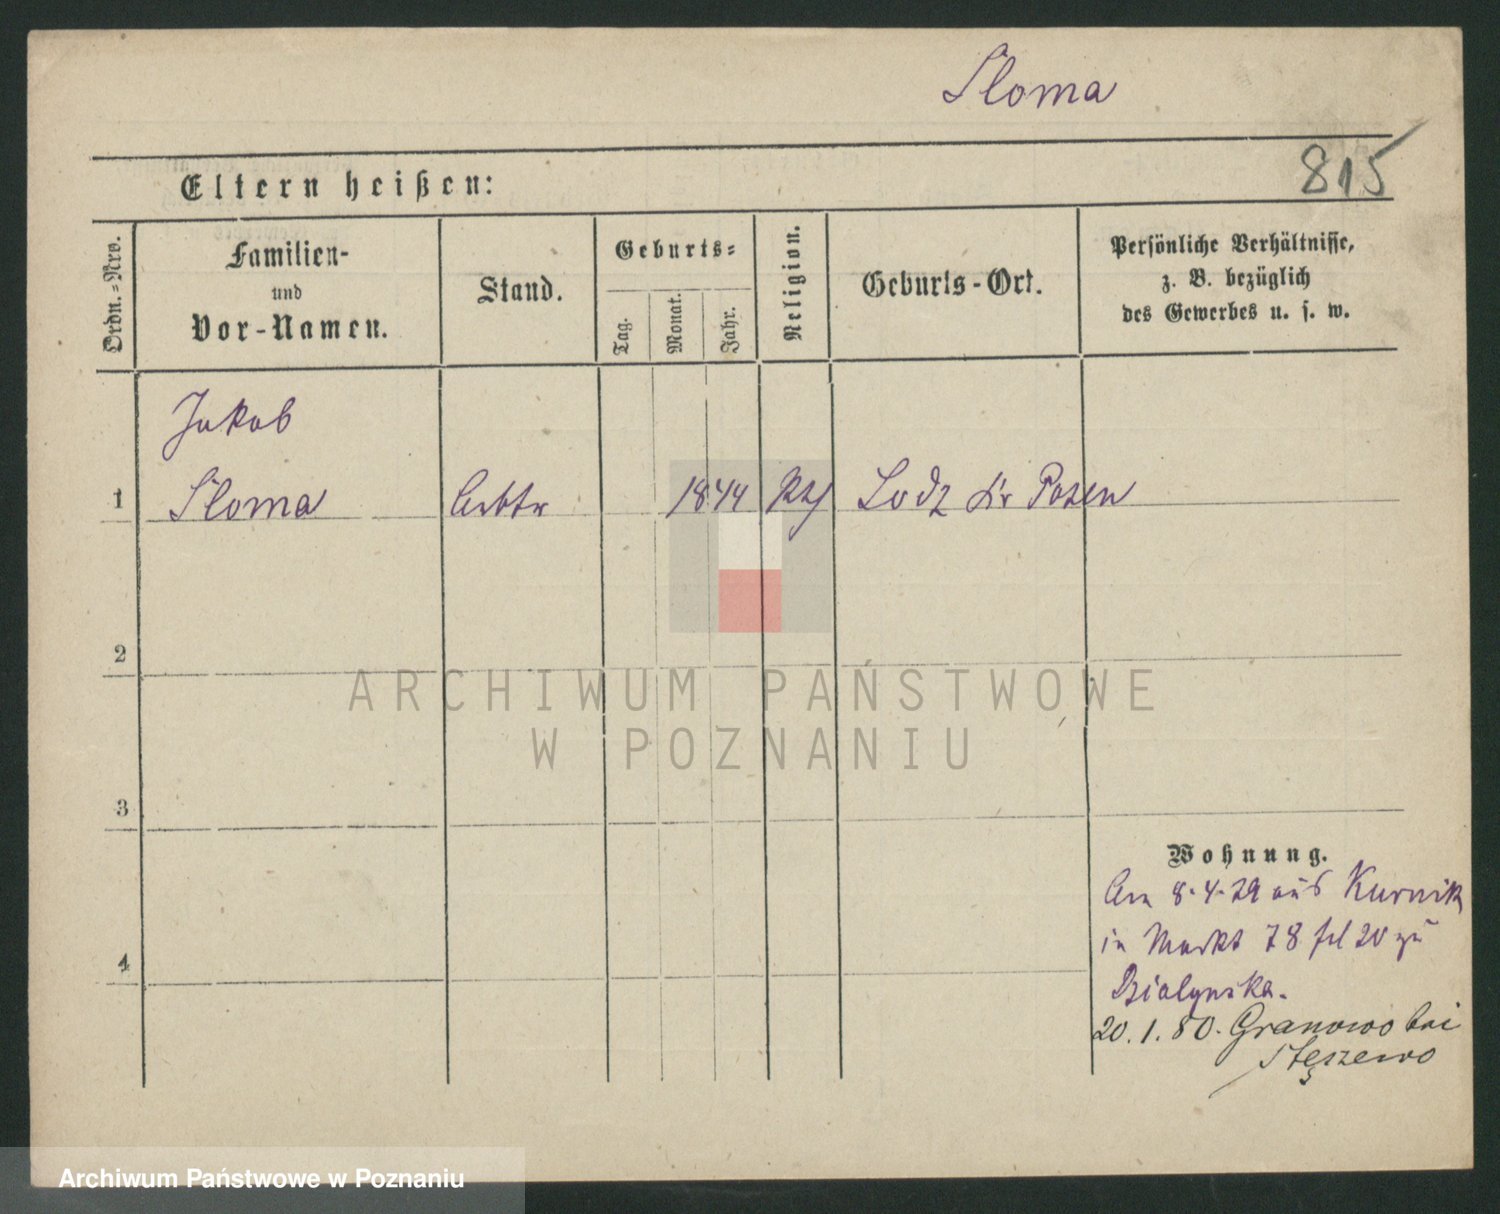 Sloma
815
Eltern heißen:
Ordn.=Nro.
Familien-
und
Vor-Namen.
Stand.
Geburts=
Tag.
Monat.
Jahr.
Religion.
Geburts-Ort.
Persönliche Verhältnisse,
z. B. bezüglich
des Gewerbes u. s. w.
Jakob
1 Sloma Arbtr 1844 Kth Lodz Kr Posen
2
ARCHIWUM PAŃSTWOWE
W POZNANIU
3
Wohnung.
Am 8.4.79 aus Kurnik
in Markt 78 zu
4
Bialynska.
20.1.80. Granowo bei
Stęszewo
Archiwum Państwowe w Poznaniu